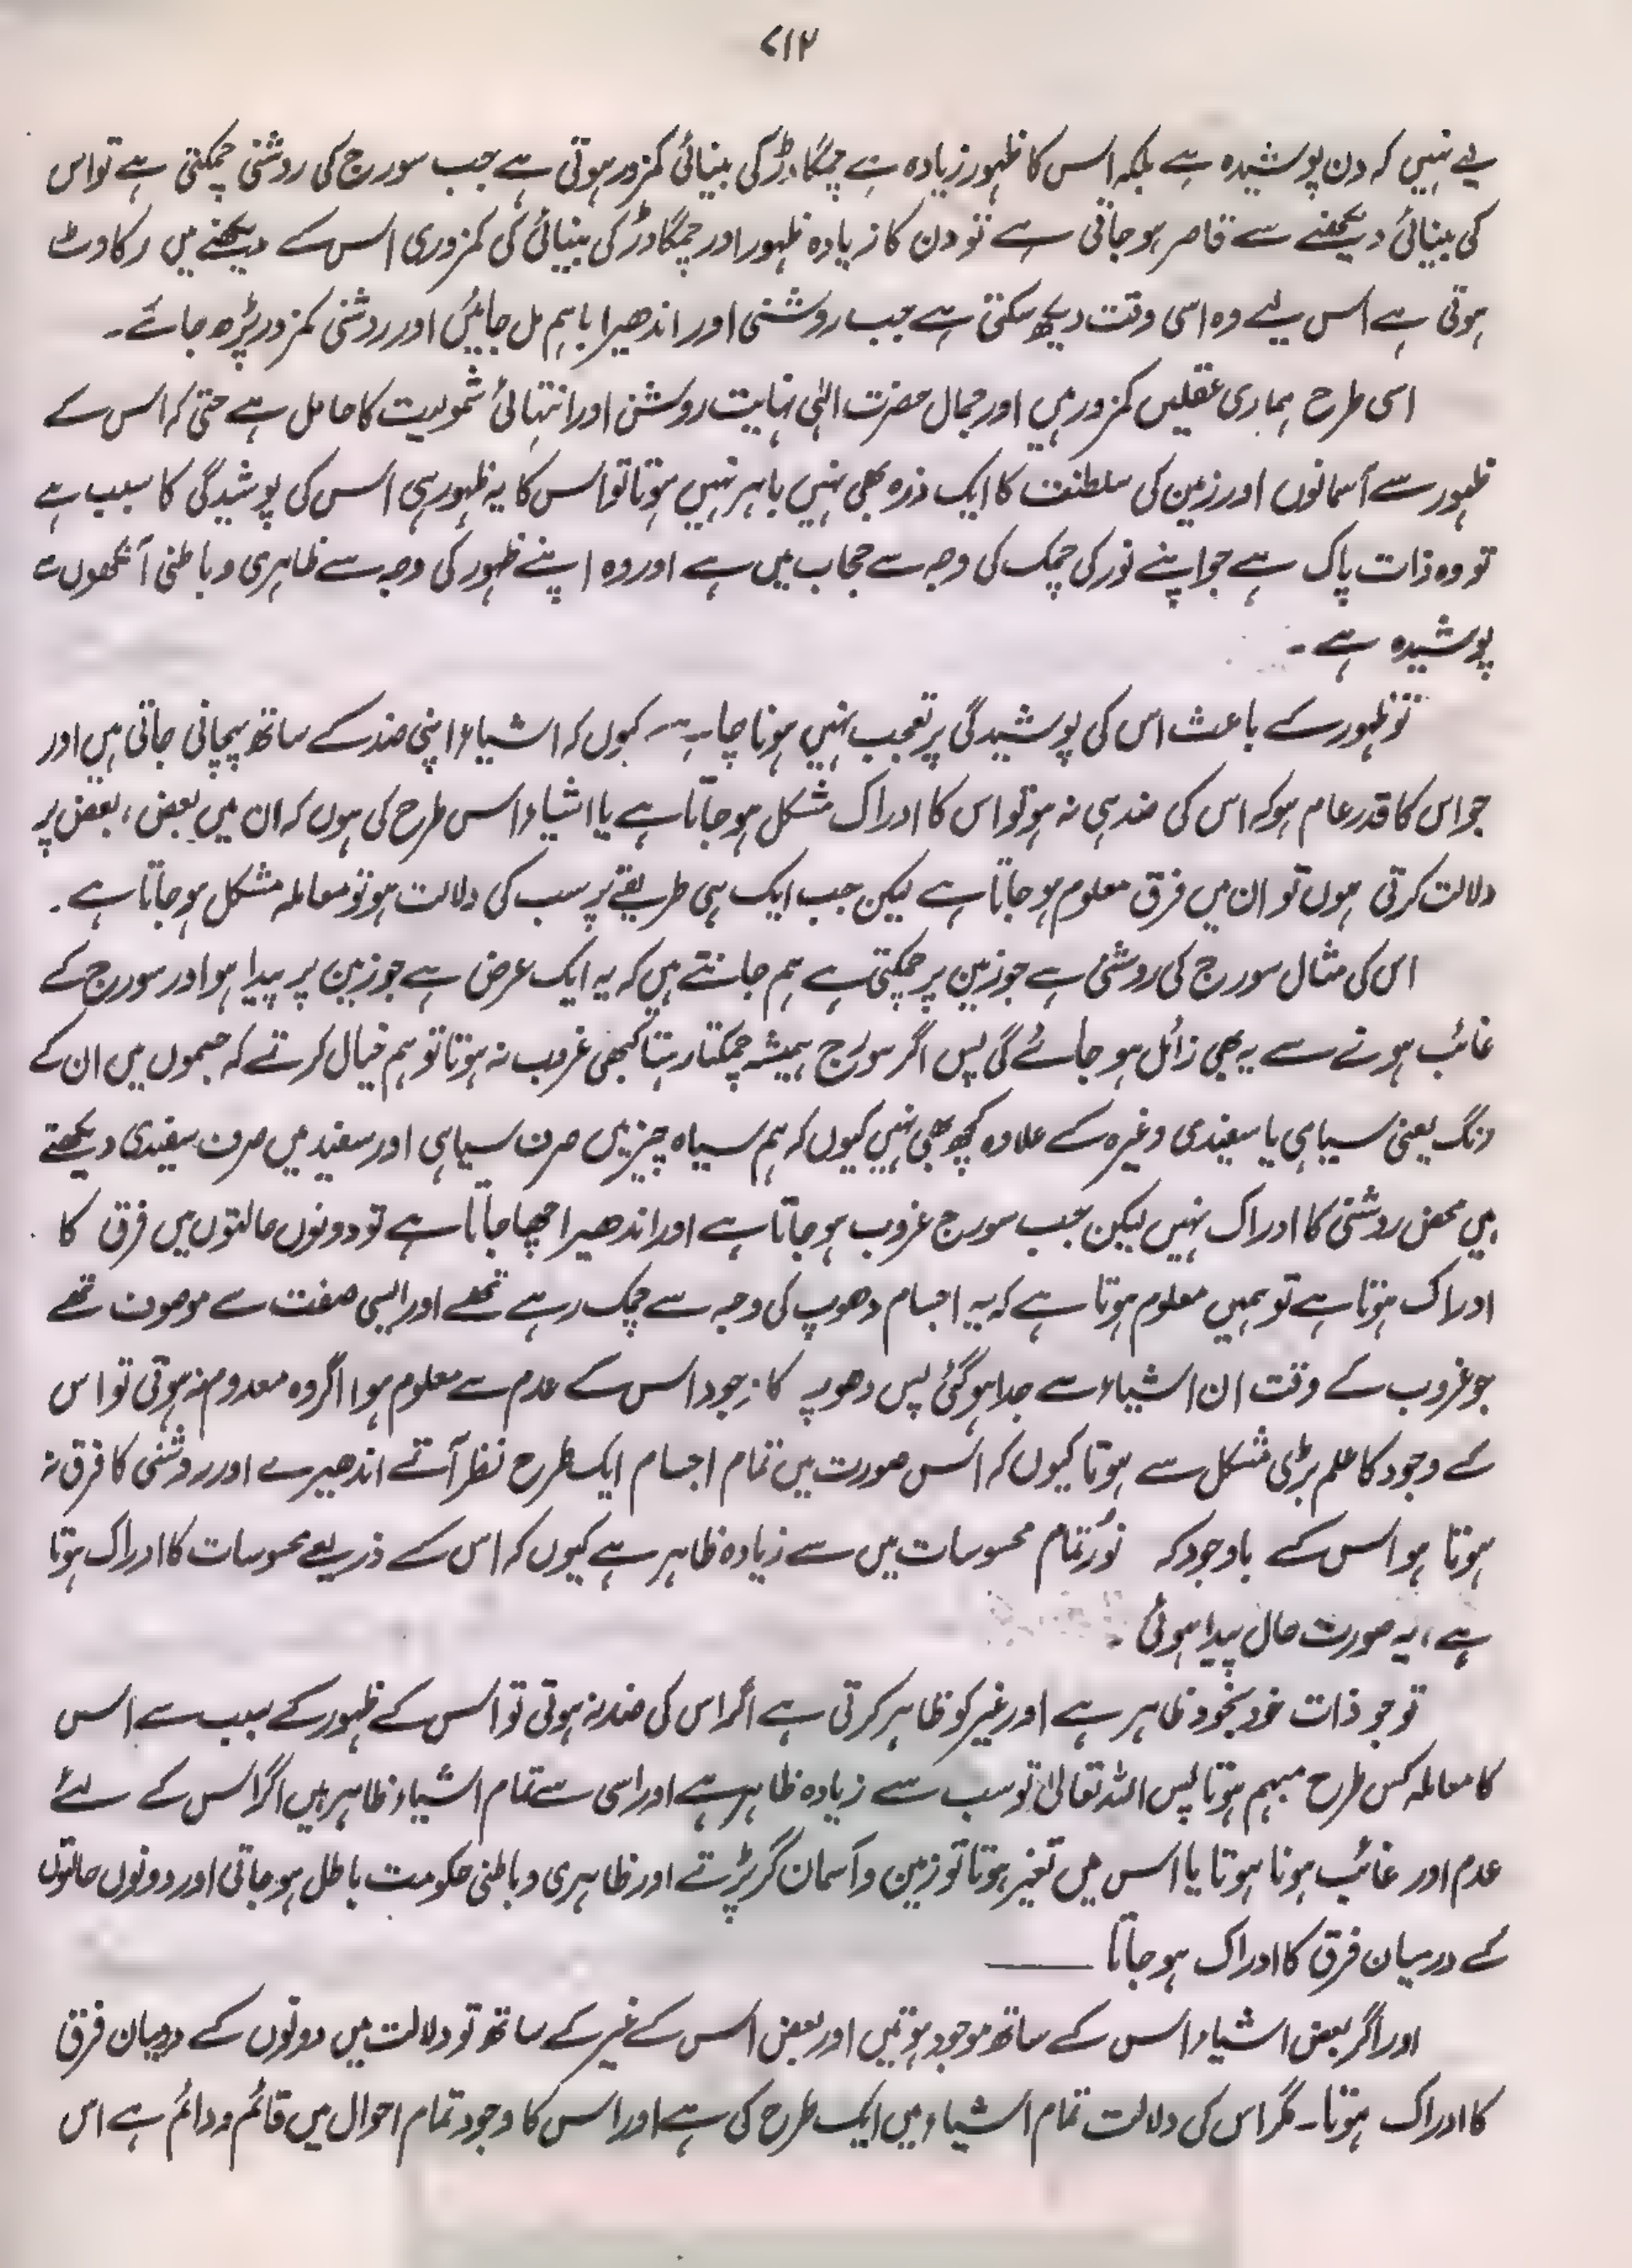 ۷۱۲
یے نہیں کہ دن پوشیدہ ہے بلکہ اس کا ظہور زیادہ ہے چمگادڑ کی بینائی کمزور ہوتی ہے جب سورج کی روشنی چمکتی ہے تو اس
کی بینائی دیکھنے سے قاصر ہو جاتی ہے تو دن کا زیادہ ظہور اور چمگادڑ کی بینائی کی کمزوری اس کے دیکھنے میں رکاوٹ
ہوتی ہے اس لیے وہ اسی وقت دیکھ سکتی ہے جب روشنی اور اندھیرا باہم مل جائیں اور روشنی کمزور پڑھ جائے۔
اسی طرح ہماری عقلیں کمزور ہیں اور جمال حضرت الٰہی نہایت روشن اور انتہائی شمولیت کا حامل ہے حتی کہ اس کے
ظہور سے آسمانوں اور زمین کی سلطنت کا ایک ذرہ بھی نہیں باہر نہیں ہوتا تو اس کا یہ ظہور ہی اس کی پوشیدگی کا سبب ہے
تو وہ ذات پاک ہے جو اپنے نور کی چمک کی وجہ سے حجاب میں ہے اور وہ اپنے ظہور کی وجہ سے ظاہری و باطنی آنکھوں سے
پوشیدہ ہے۔
تو ظہور کے باعث اس کی پوشیدگی پر تعجب نہیں ہونا چاہیے کیوں کہ اشیاء اپنی ضد کے ساتھ پہچانی جاتی ہیں اور
جو اس کا قدر عام ہو کہ اس کی ضد ہی نہ ہو تو اس کا ادراک مشکل ہو جاتا ہے یا اشیاء اس طرح کی ہوں کہ ان میں بعض، بعض پر
دلالت کرتی ہوں تو ان میں فرق معلوم ہو جاتا ہے لیکن جب ایک ہی طریقے پر سب کی دلالت ہو تو معاملہ مشکل ہو جاتا ہے۔
اس کی مثال سورج کی روشنی ہے جو زمین پر چمکتی ہے ہم جانتے ہیں کہ یہ ایک عرض ہے جو زمین پر پیدا ہوا اور سورج کے
غائب ہونے سے یہ بھی زائل ہو جائے گی پس اگر سورج ہمیشہ چمکتا رہتا کبھی غروب نہ ہوتا تو ہم خیال کرتے کہ جسموں میں ان کے
رنگ یعنی سیاہی یا سفیدی وغیرہ کے علاوہ کچھ بھی نہیں کیوں کہ ہم سیاہ چیز میں صرف سیاہی اور سفید میں صرف سفیدی دیکھتے
ہیں محض روشنی کا ادراک نہیں لیکن جب سورج غروب ہو جاتا ہے اور اندھیرا چھا جاتا ہے تو دونوں حالتوں میں فرق کا
ادراک ہوتا ہے تو ہمیں معلوم ہوتا ہے کہ یہ اجسام دھوپ کی وجہ سے چمک رہے تھے اور ایسی صفت سے موصوف تھے
جو غروب کے وقت ان اشیاء سے جدا ہو گئی پس دھوپ کا وجود اس کے عدم سے معلوم ہوا اگر وہ معدوم نہ ہوتی تو اس
کے وجود کا علم بڑی مشکل سے ہوتا کیوں کہ اس صورت میں تمام اجسام ایک طرح نظر آتے اندھیرے اور روشنی کا فرق نہ
ہوتا ہو اس کے باوجود کہ نور تمام محسوسات میں سے زیادہ ظاہر ہے کیوں کہ اس کے ذریعے محسوسات کا ادراک ہوتا
ہے، یہ صورت حال پیدا ہوئی۔
تو جو ذات خود بخود ظاہر ہے اور غیر کو ظاہر کرتی ہے اگر اس کی ضد نہ ہوتی تو اس کے ظہور کے سبب سے اس
کا معاملہ کس طرح مبہم ہوتا پس اللہ تعالیٰ تو سب سے زیادہ ظاہر ہے اور اسی سے تمام اشیاء ظاہر ہیں اگر اس کے لئے
عدم اور غائب ہونا ہوتا یا اس میں تغیر ہوتا تو زمین و آسمان گر پڑتے اور ظاہری و باطنی حکومت باطل ہو جاتی اور دونوں حالتوں
کے درمیان فرق کا ادراک ہو جاتا ــــــ
اور اگر بعض اشیاء اس کے ساتھ موجود ہوتیں اور بعض اس کے غیر کے ساتھ تو دلالت میں دونوں کے درمیان فرق
کا ادراک ہوتا۔ مگر اس کی دلالت تمام اشیاء میں ایک طرح کی ہے اور اس کا وجود تمام احوال میں قائم و دائم ہے اس